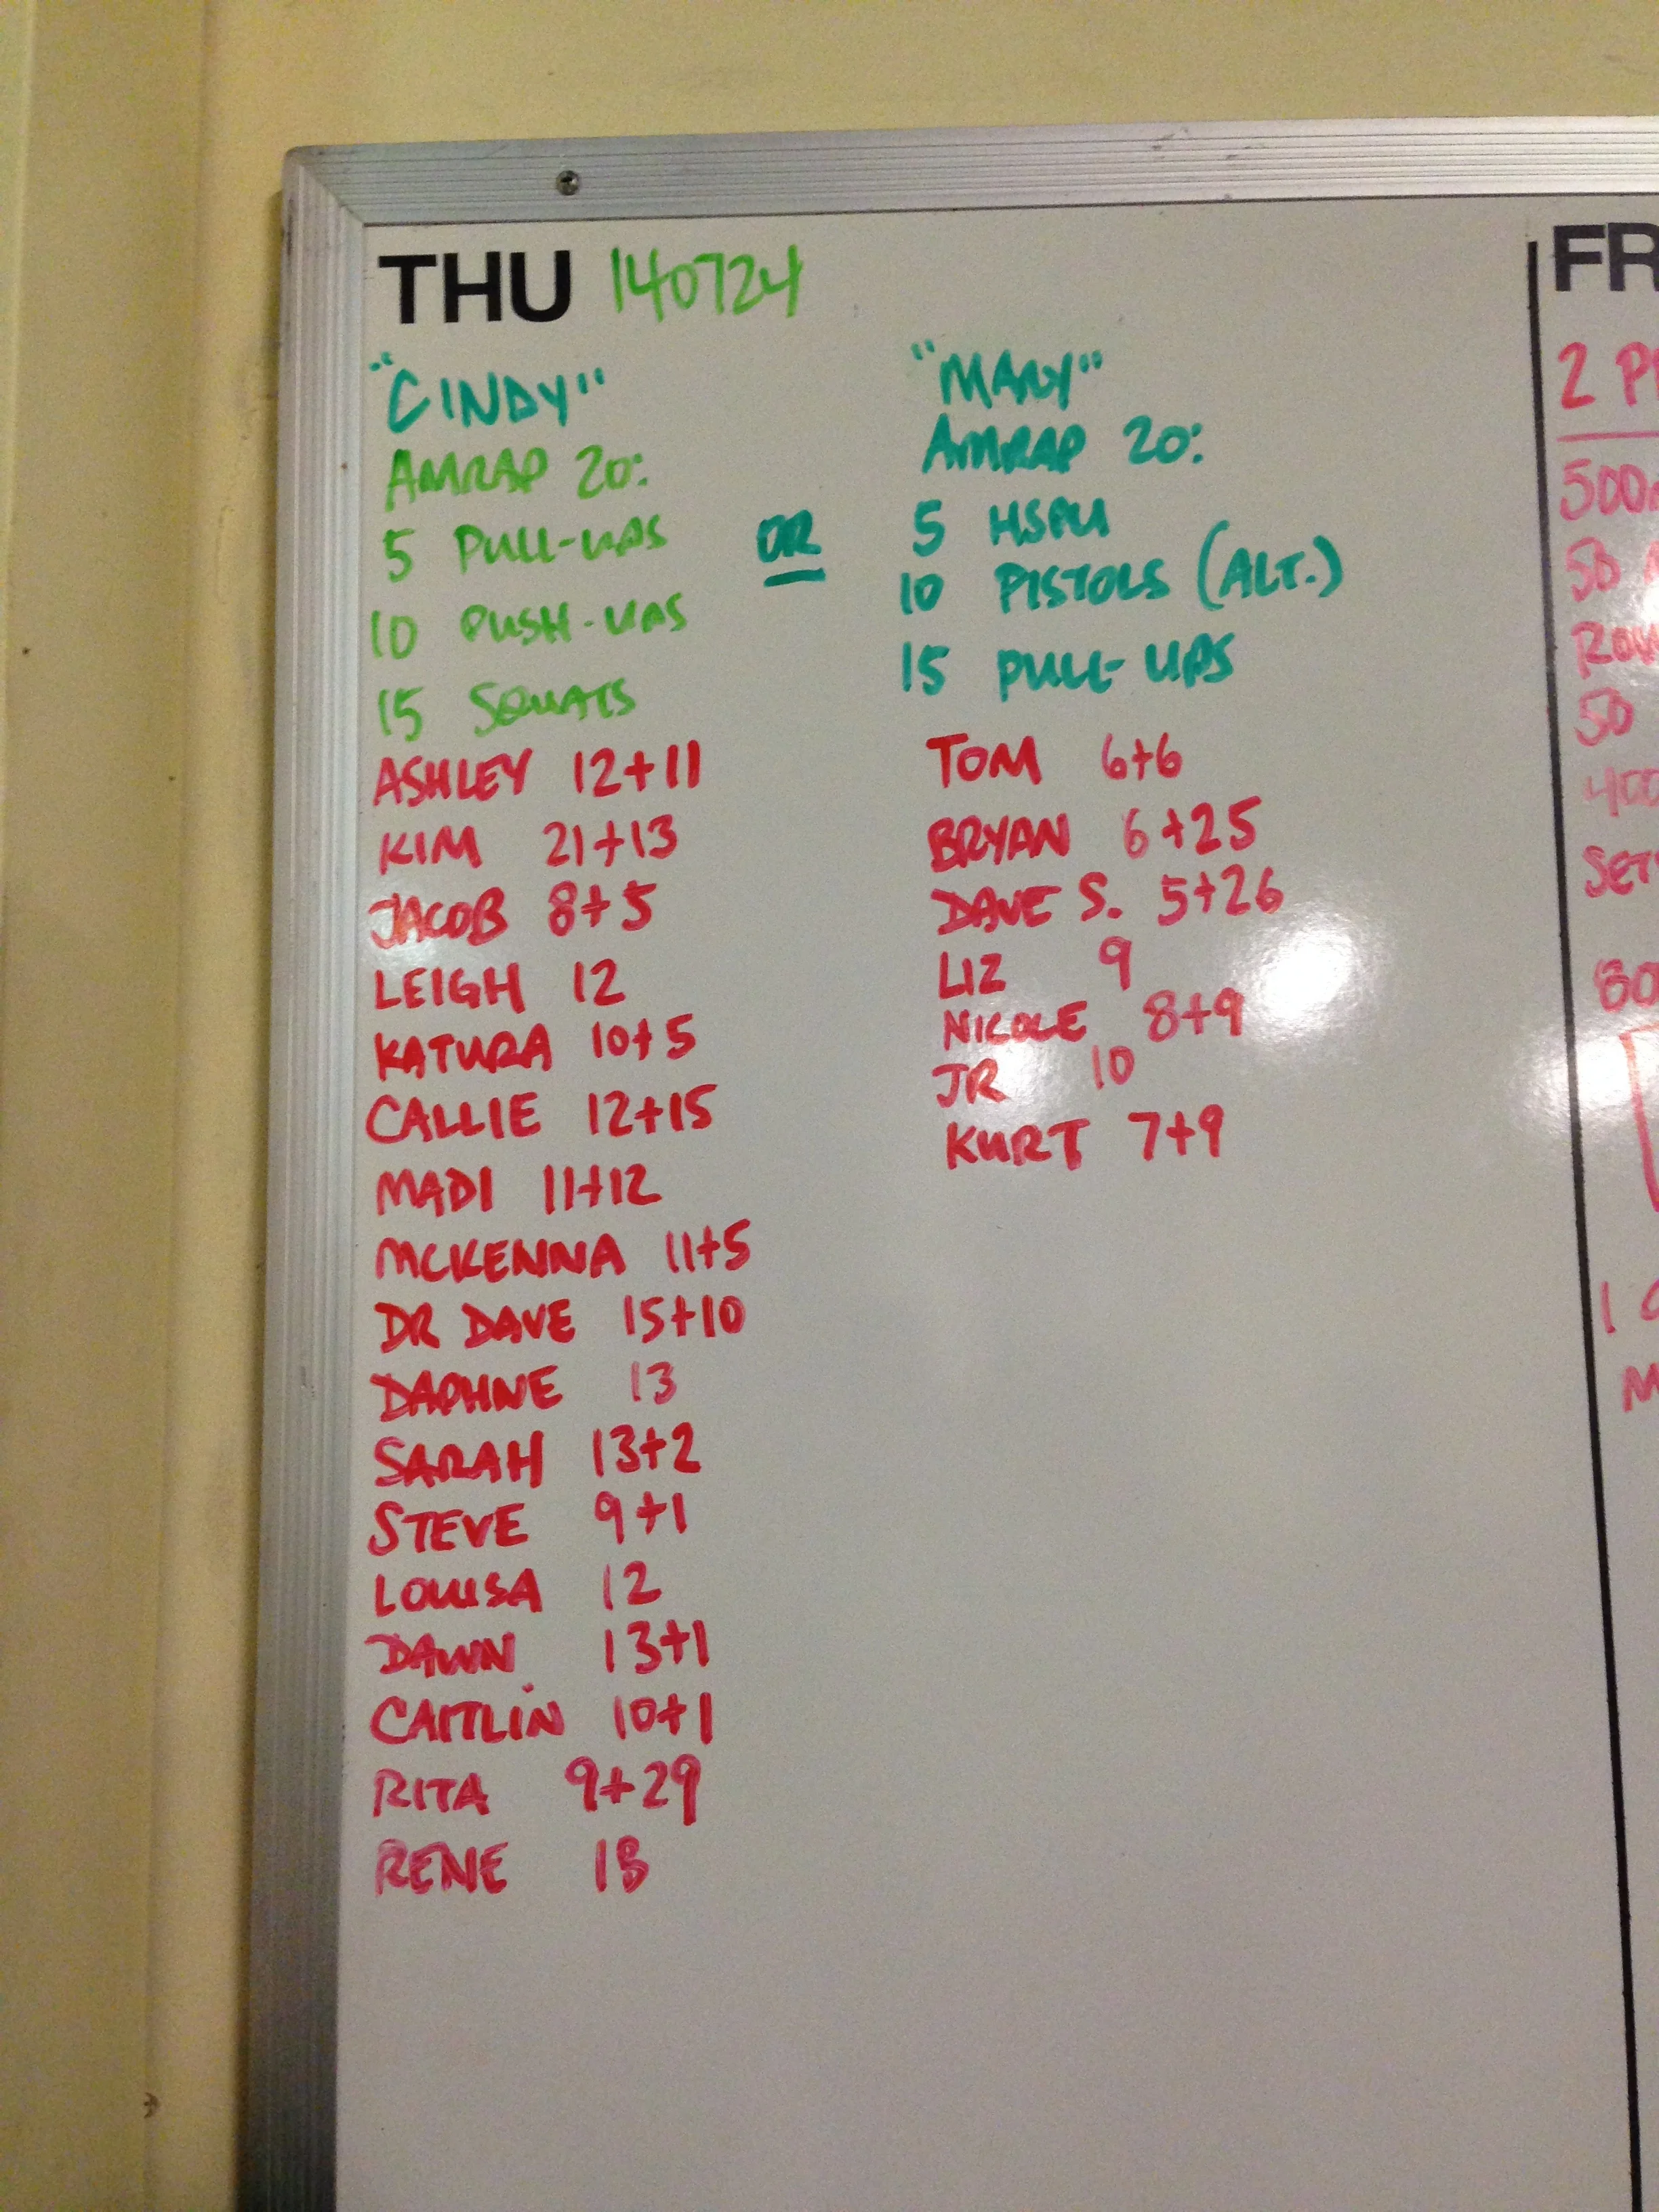 THU 140724
"CINDY"
AMRAP 20:
5 PULL-UPS
10 PUSH-UPS
15 SQUATS
ASHLEY 12+11
KIM 21+13
JACOB 8+5
LEIGH 12
KATURA 10+5
CALLIE 12+15
MADI 11+12
MCKENNA 11+5
DR DAVE 15+10
DAPHNE 13
SARAH 13+2
STEVE 9+1
LOUISA 12
DAWN 13+1
CAITLIN 10+1
RITA 9+29
RENE
OR
"MARY"
AMRAP 20:
5 HSPU
10 PISTOLS (ALT.)
15 PULL-UPS
TOM 6+6
BRYAN 6+25
DAVE S. 5+26
LIZ 9
NICOLE 8+9
JR 10
KURT 7+9
FR
2 P
500
50
ROW
50
400
SET
80
1
M